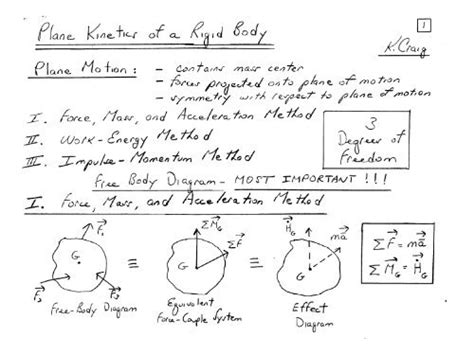 1
Plane Kinetics of a Rigid Body
K. Craig
Plane Motion: – contains mass center
– forces projected onto plane of motion
– symmetry with respect to plane of motion
I. Force, Mass, and Acceleration Method
II. Work-Energy Method
III. Impulse-Momentum Method
3
Degrees of
Freedom
Free Body Diagram – MOST IMPORTANT !!!
I. Force, Mass, and Acceleration Method
F⃗₁
G
F⃗₃
F⃗₂
Free-Body Diagram
≡
ΣM⃗_G
ΣF⃗
G
Equivalent
Force-Couple System
≡
H⃗̇_G
ma⃗
G
Effect
Diagram
ΣF⃗ = ma⃗
ΣM⃗_G = H⃗̇_G